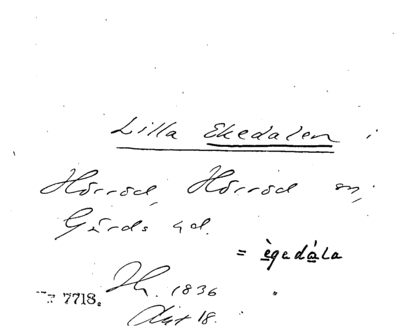 Lilla Ekedalen i
Hörröd, Hörröd sn,
Gärds hd.
= ègedàla
7718. Th. 1836
18.